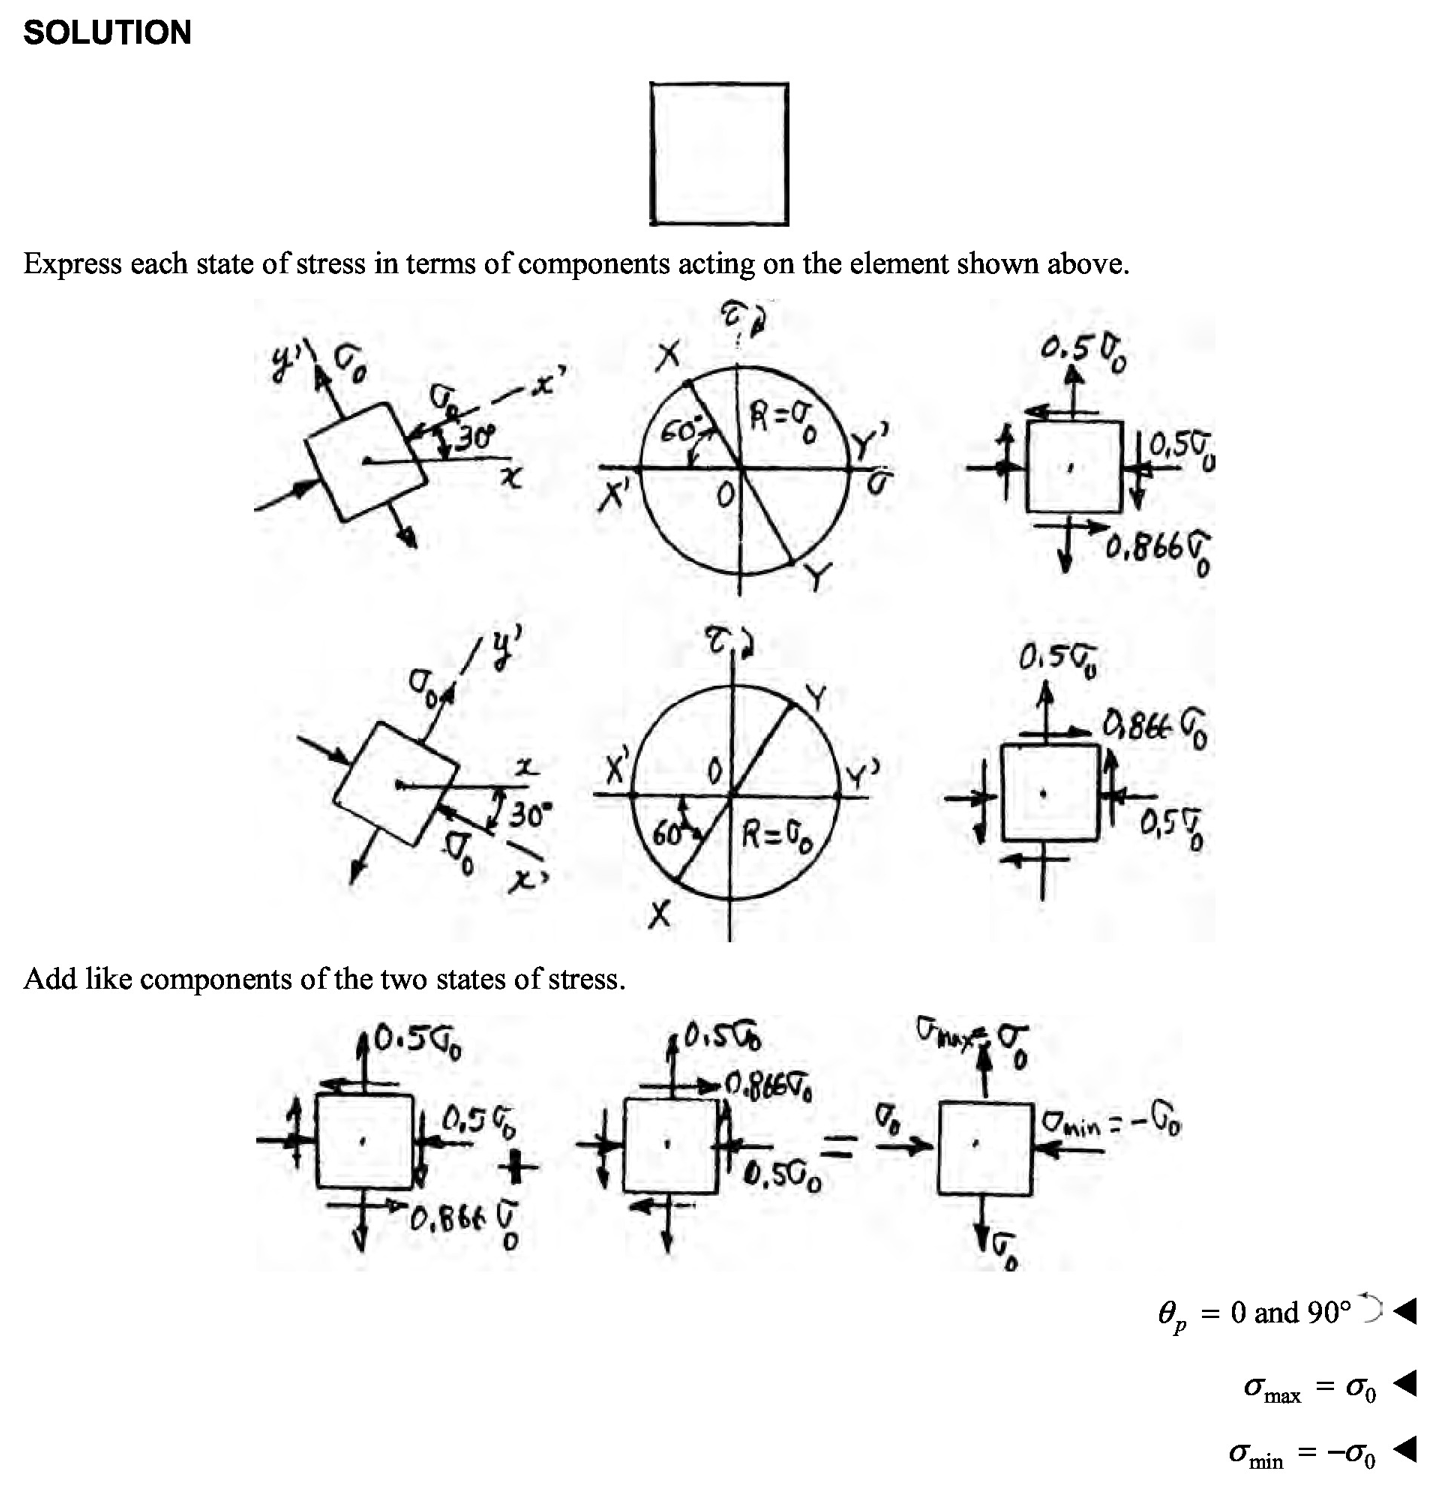 SOLUTION
Express each state of stress in terms of components acting on the element shown above.
y' σ₀
σ₀ x'
30°
x
τ
X
60° R=σ₀
Y'
X' O σ
Y
0.5σ₀
0,5σ₀
0.866σ₀
y'
σ₀
x
30°
σ₀
x'
τ
Y
X' O Y'
60° R=σ₀
X
0.5σ₀
0,866σ₀
0,5σ₀
Add like components of the two states of stress.
0.5σ₀
0.5σ₀
0.866 σ₀
+
0.5σ₀
0.866σ₀
0.5σ₀
=
σmax=σ₀
σ₀
σmin = -σ₀
σ₀
θp = 0 and 90° ⤴ ◀
σmax = σ₀ ◀
σmin = −σ₀ ◀